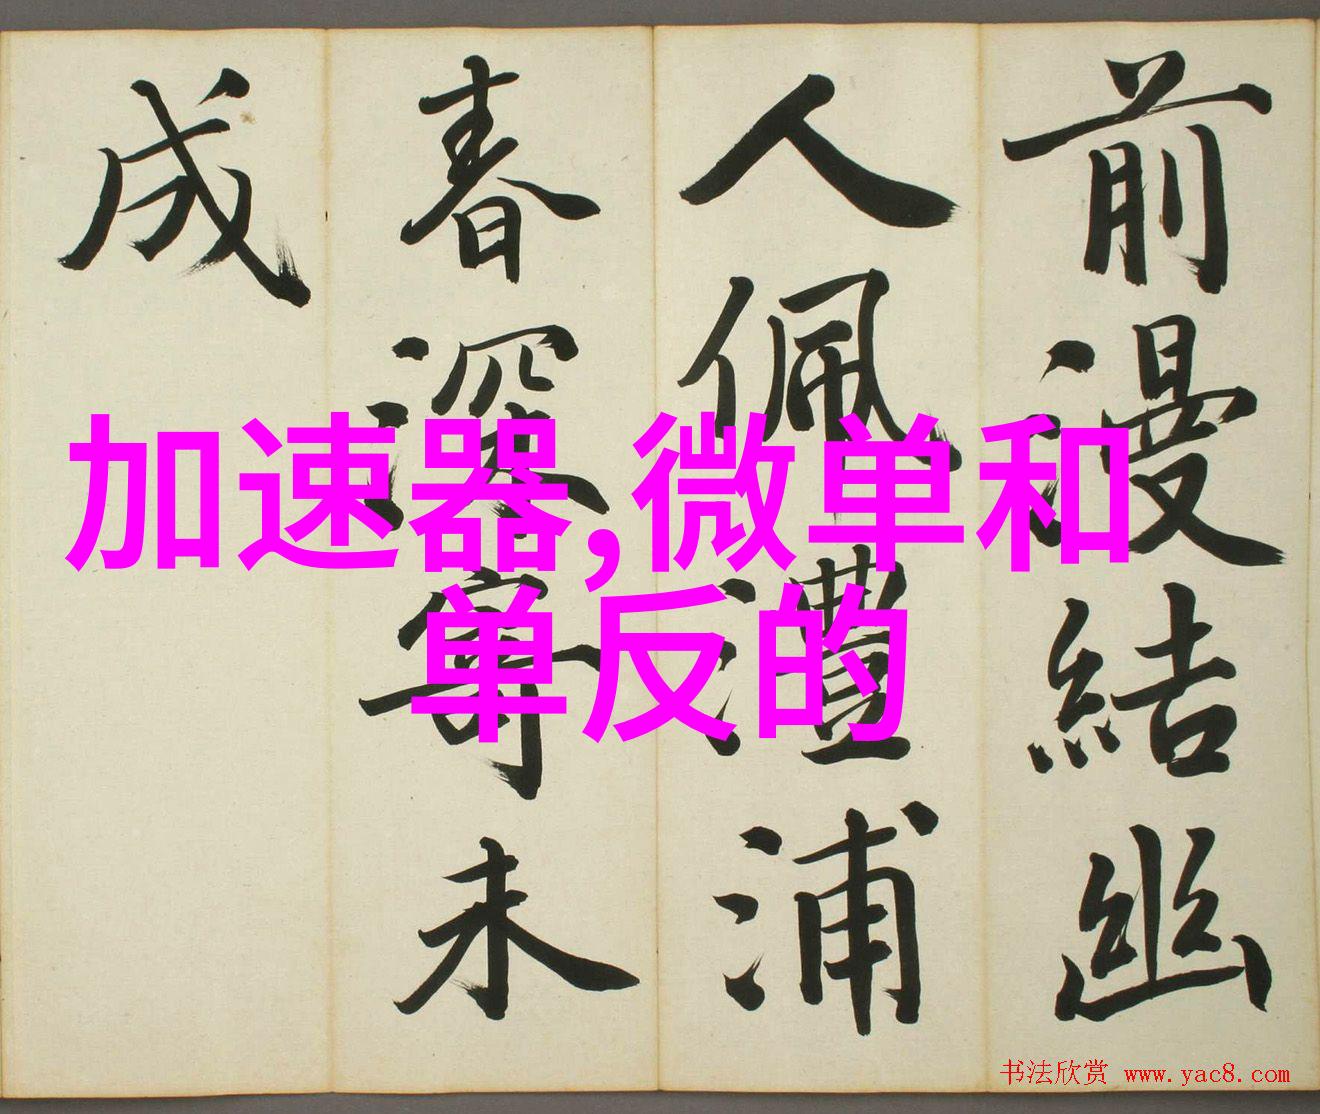 前漫結幽
人佩灃浦
春深寄未
成
加速器,微单和
单反的
书法欣赏 www.yac8.com